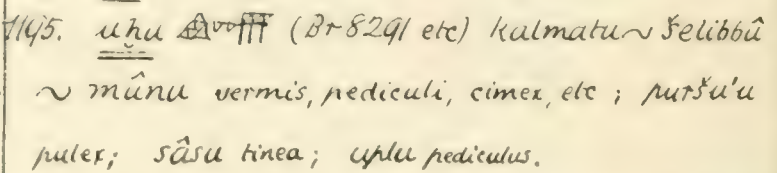 1195. uḫu (Br 8291 etc) kalmatu ~ šelibbû
~ mûnu vermis, pediculi, cimex, etc; puršu'u
pulex; sâsu tinea; uplu pediculus.